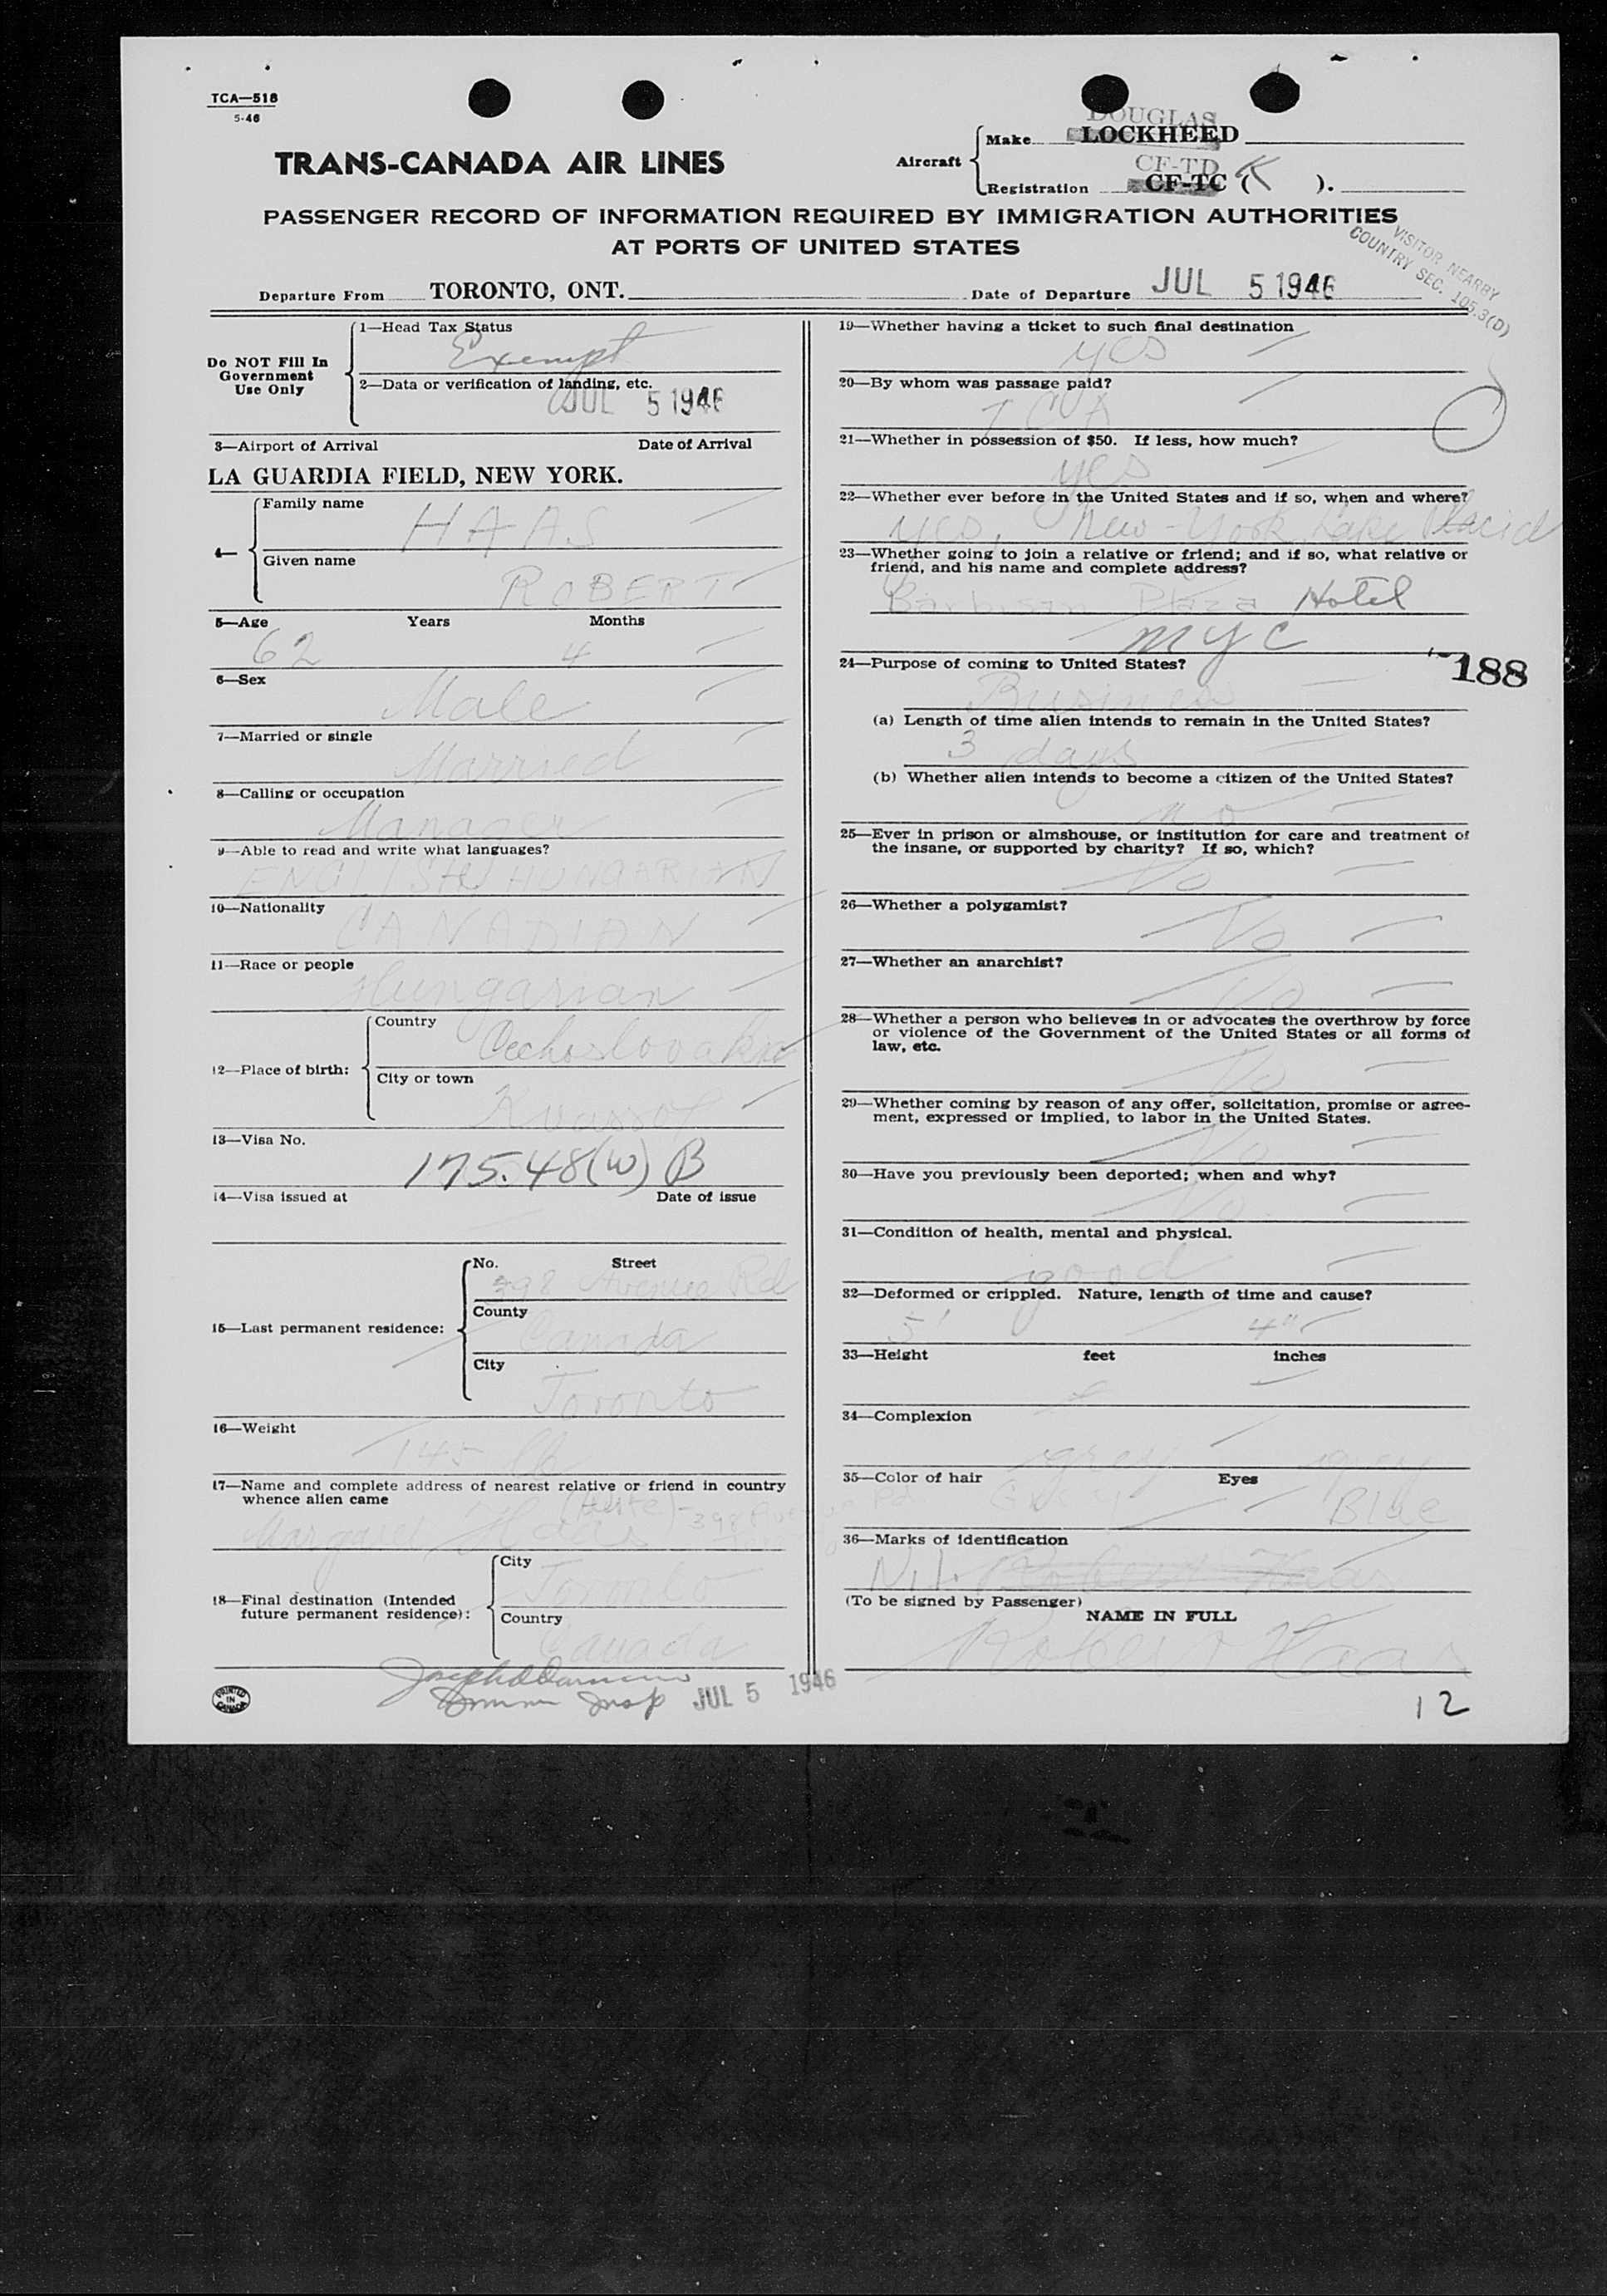 TCA—518
5-46
TRANS-CANADA AIR LINES
Aircraft
Make
DOUGLAS
LOCKHEED
Registration
CF-TD
CF-TC ( K ).
PASSENGER RECORD OF INFORMATION REQUIRED BY IMMIGRATION AUTHORITIES
AT PORTS OF UNITED STATES
VISITOR NEARBY
COUNTRY SEC. 105.3(D)
Departure From TORONTO, ONT. Date of Departure JUL 5 1946
Do NOT Fill In
Government
Use Only
1—Head Tax Status
Exempt
2—Data or verification of landing, etc.
JUL 5 1946
3—Airport of Arrival Date of Arrival
LA GUARDIA FIELD, NEW YORK.
4—
Family name
HAAS
Given name
ROBERT
5—Age Years Months
62 4
6—Sex
Male
7—Married or single
Married
8—Calling or occupation
Manager
9—Able to read and write what languages?
ENGLISH HUNGARIAN
10—Nationality
CANADIAN
11—Race or people
Hungarian
12—Place of birth:
Country
City or town
13—Visa No.
175.48(W) B
14—Visa issued at Date of issue
15—Last permanent residence:
No. Street
398 Avenue Rd
County
Canada
City
Toronto
16—Weight
145 lb
17—Name and complete address of nearest relative or friend in country
whence alien came
Margaret Haas (Wife) - 398
18—Final destination (Intended
future permanent residence):
City
Toronto
Country
Canada
Immn Insp JUL 5 1946
PRINTED
IN
CANADA
19—Whether having a ticket to such final destination
yes
20—By whom was passage paid?
21—Whether in possession of $50. If less, how much?
yes
22—Whether ever before in the United States and if so, when and where?
yes, New-York, Lake Placid
23—Whether going to join a relative or friend; and if so, what relative or
friend, and his name and complete address?
Barbison Plaza Hotel
NYC
188
24—Purpose of coming to United States?
Business
(a) Length of time alien intends to remain in the United States?
3 days
(b) Whether alien intends to become a citizen of the United States?
no
25—Ever in prison or almshouse, or institution for care and treatment of
the insane, or supported by charity? If so, which?
No
26—Whether a polygamist?
No
27—Whether an anarchist?
No
28—Whether a person who believes in or advocates the overthrow by force
or violence of the Government of the United States or all forms of
law, etc.
No
29—Whether coming by reason of any offer, solicitation, promise or agree-
ment, expressed or implied, to labor in the United States.
No
30—Have you previously been deported; when and why?
No
31—Condition of health, mental and physical.
good
32—Deformed or crippled. Nature, length of time and cause?
5' 4"
33—Height feet inches
34—Complexion
grey grey
35—Color of hair Eyes
Grey Blue
36—Marks of identification
Nil. Robert Haas
(To be signed by Passenger)
NAME IN FULL
Robert Haas
12